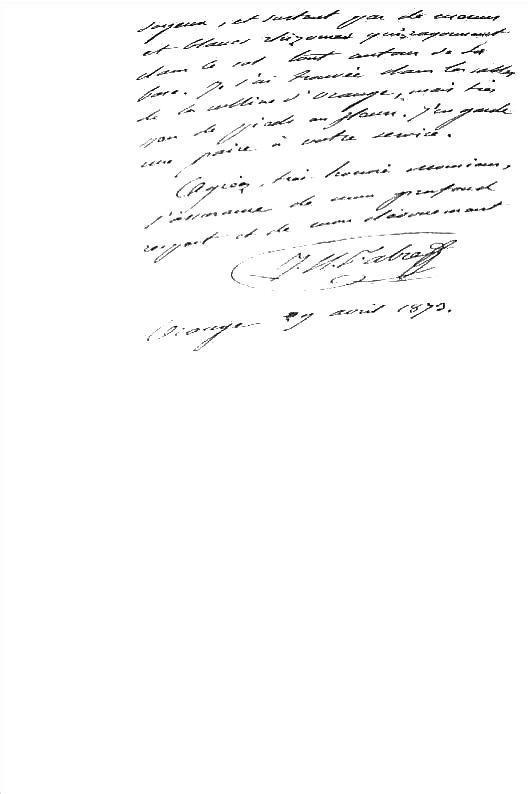 soyeux, et surtout par de menus
et blancs rhizomes qui rayonnent
dans le sol tout autour de la
base. Je l'ai trouvée dans les sables
de la colline d'Orange, mais très
peu de pieds au plus. J'en garde
une paire à votre service.
Agréez, très honoré monsieur,
l'assurance de mon profond
respect et de mon dévouement
J. H. Fabre
Orange 29 avril 1873.